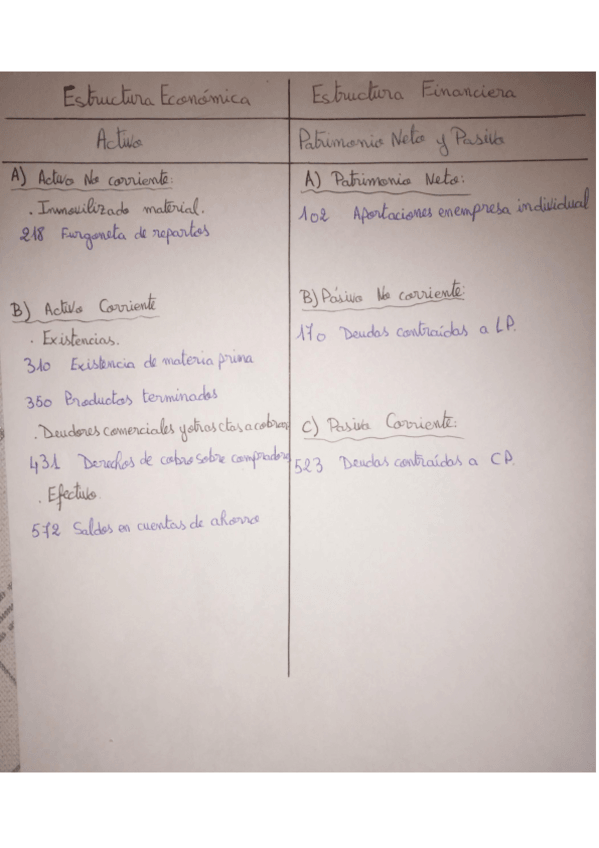 Estructura Económica
Activo
A) Activo No corriente:
. Inmovilizado material.
218 Furgoneta de repartos
B) Activo Corriente
. Existencias.
310 Existencia de materia prima
350 Productos terminados
. Deudores comerciales y otras ctas a cobrar
431 Derechos de cobro sobre compradores
. Efectivo.
572 Saldos en cuentas de ahorro
Estructura Financiera
Patrimonio Neto y Pasivo
A) Patrimonio Neto:
102 Aportaciones en empresa individual
B) Pásivo No corriente:
170 Deudas contraídas a LP.
C) Pasivo Corriente:
523 Deudas contraídas a CP.